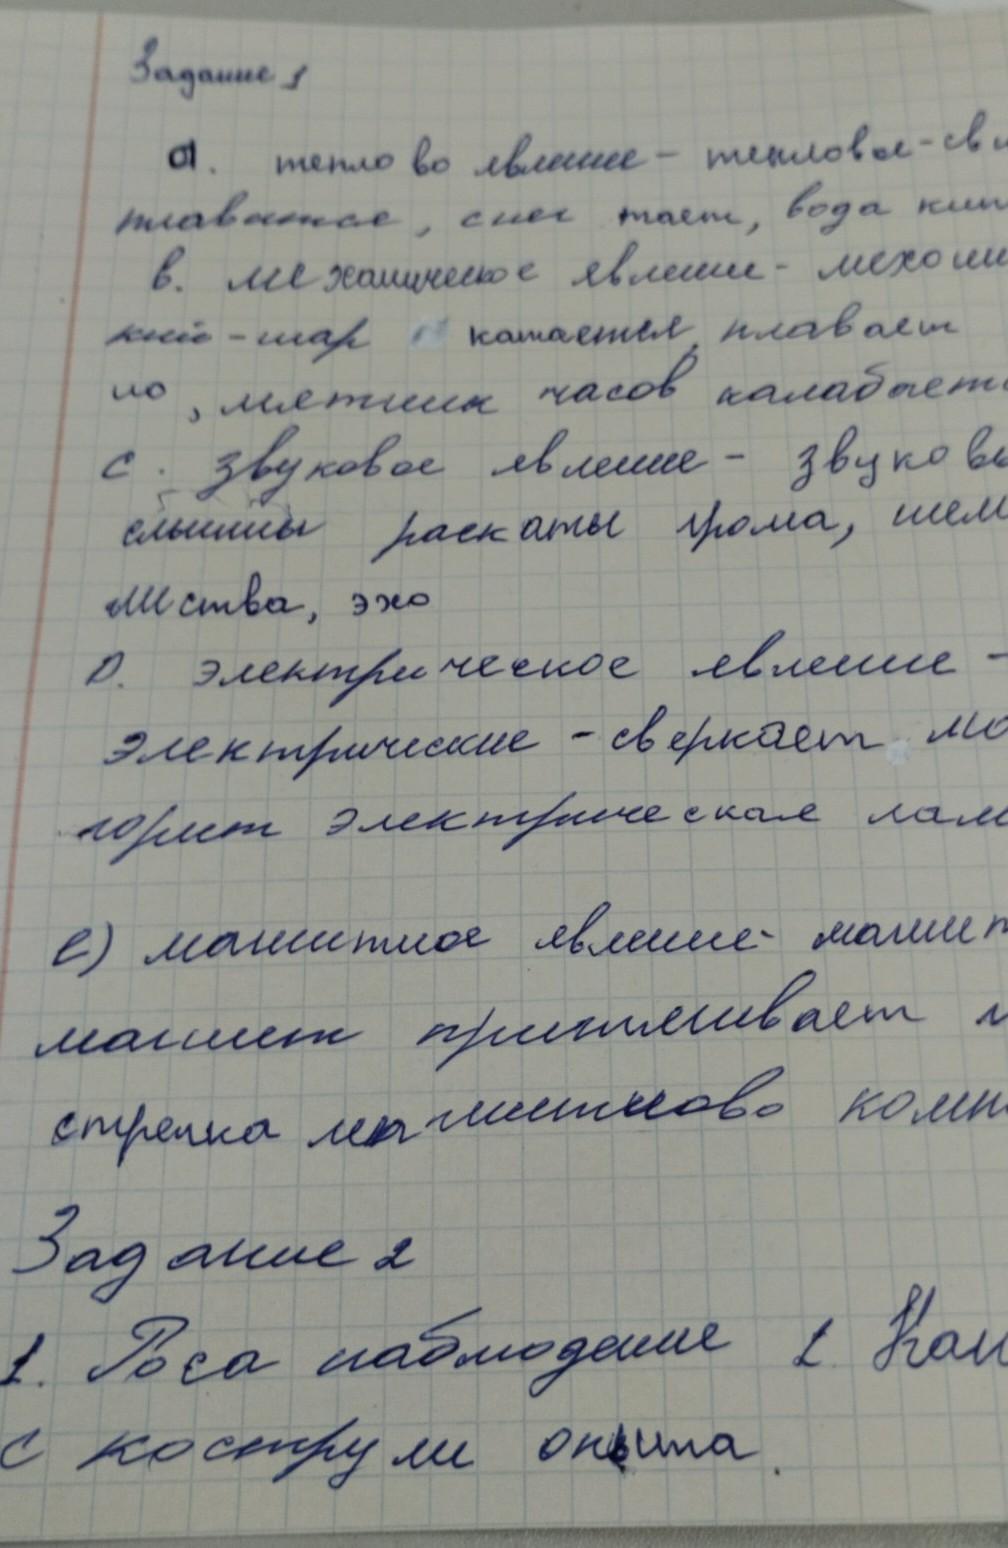 Задание 1
а. теплово явление - тепловое - св
плавится, снег тает, вода кип
в. механическое явление - механи
кий - шар катается, плавает
но, мятник часов калабается
с. звуковое явление - звуковы
слышны раскаты грома, шел
листва, эхо
D. электрическое явление -
электрические - сверкает мо
горит электрическая лам
е) магнитное явление - магнит
магнит притягивает
стрелка магнитново комп
Задание 2
1. Роса наблюдение 1. Кап
с кострули опыта.